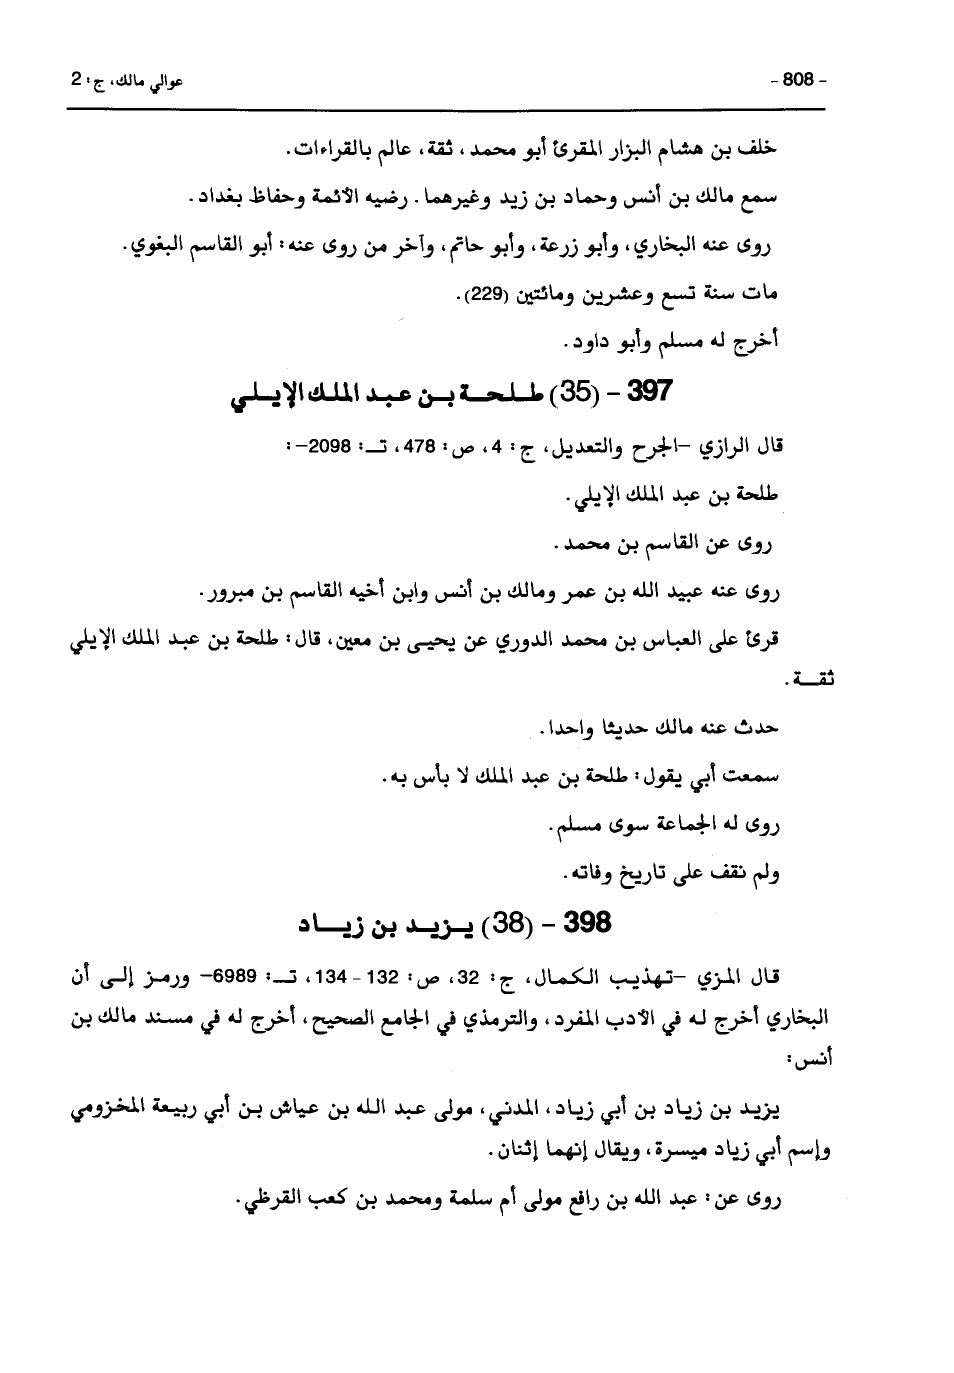 - 808 -
عوالي مالك، ج: 2
خلف بن هشام البزار المقرئ أبو محمد، ثقة، عالم بالقراءات.
سمع مالك بن أنس وحماد بن زيد وغيرهما. رضيه الأئمة وحفاظ بغداد.
روى عنه البخاري، وأبو زرعة، وأبو حاتم، وآخر من روى عنه: أبو القاسم البغوي.
مات سنة تسع وعشرين ومائتين (229).
أخرج له مسلم وأبو داود.
397 - (35) طلحة بن عبد الملك الإيلي
قال الرازي -الجرح والتعديل، ج: 4، ص: 478، تـ: 2098-:
طلحة بن عبد الملك الإيلي.
روى عن القاسم بن محمد.
روى عنه عبيد الله بن عمر ومالك بن أنس وابن أخيه القاسم بن مبرور.
قرئ على العباس بن محمد الدوري عن يحيى بن معين، قال: طلحة بن عبد الملك الإيلي
ثقة.
حدث عنه مالك حديثا واحدا.
سمعت أبي يقول: طلحة بن عبد الملك لا بأس به.
روى له الجماعة سوى مسلم.
ولم نقف على تاريخ وفاته.
398 - (38) يزيد بن زياد
قال المزي -تهذيب الكمال، ج: 32، ص: 132 - 134، تـ: 6989- ورمز إلى أن
البخاري أخرج له في الأدب المفرد، والترمذي في الجامع الصحيح، أخرج له في مسند مالك بن
أنس:
يزيد بن زياد بن أبي زياد، المدني، مولى عبد الله بن عياش بن أبي ربيعة المخزومي
وإسم أبي زياد ميسرة، ويقال إنهما إثنان.
روى عن: عبد الله بن رافع مولى أم سلمة ومحمد بن كعب القرظي.